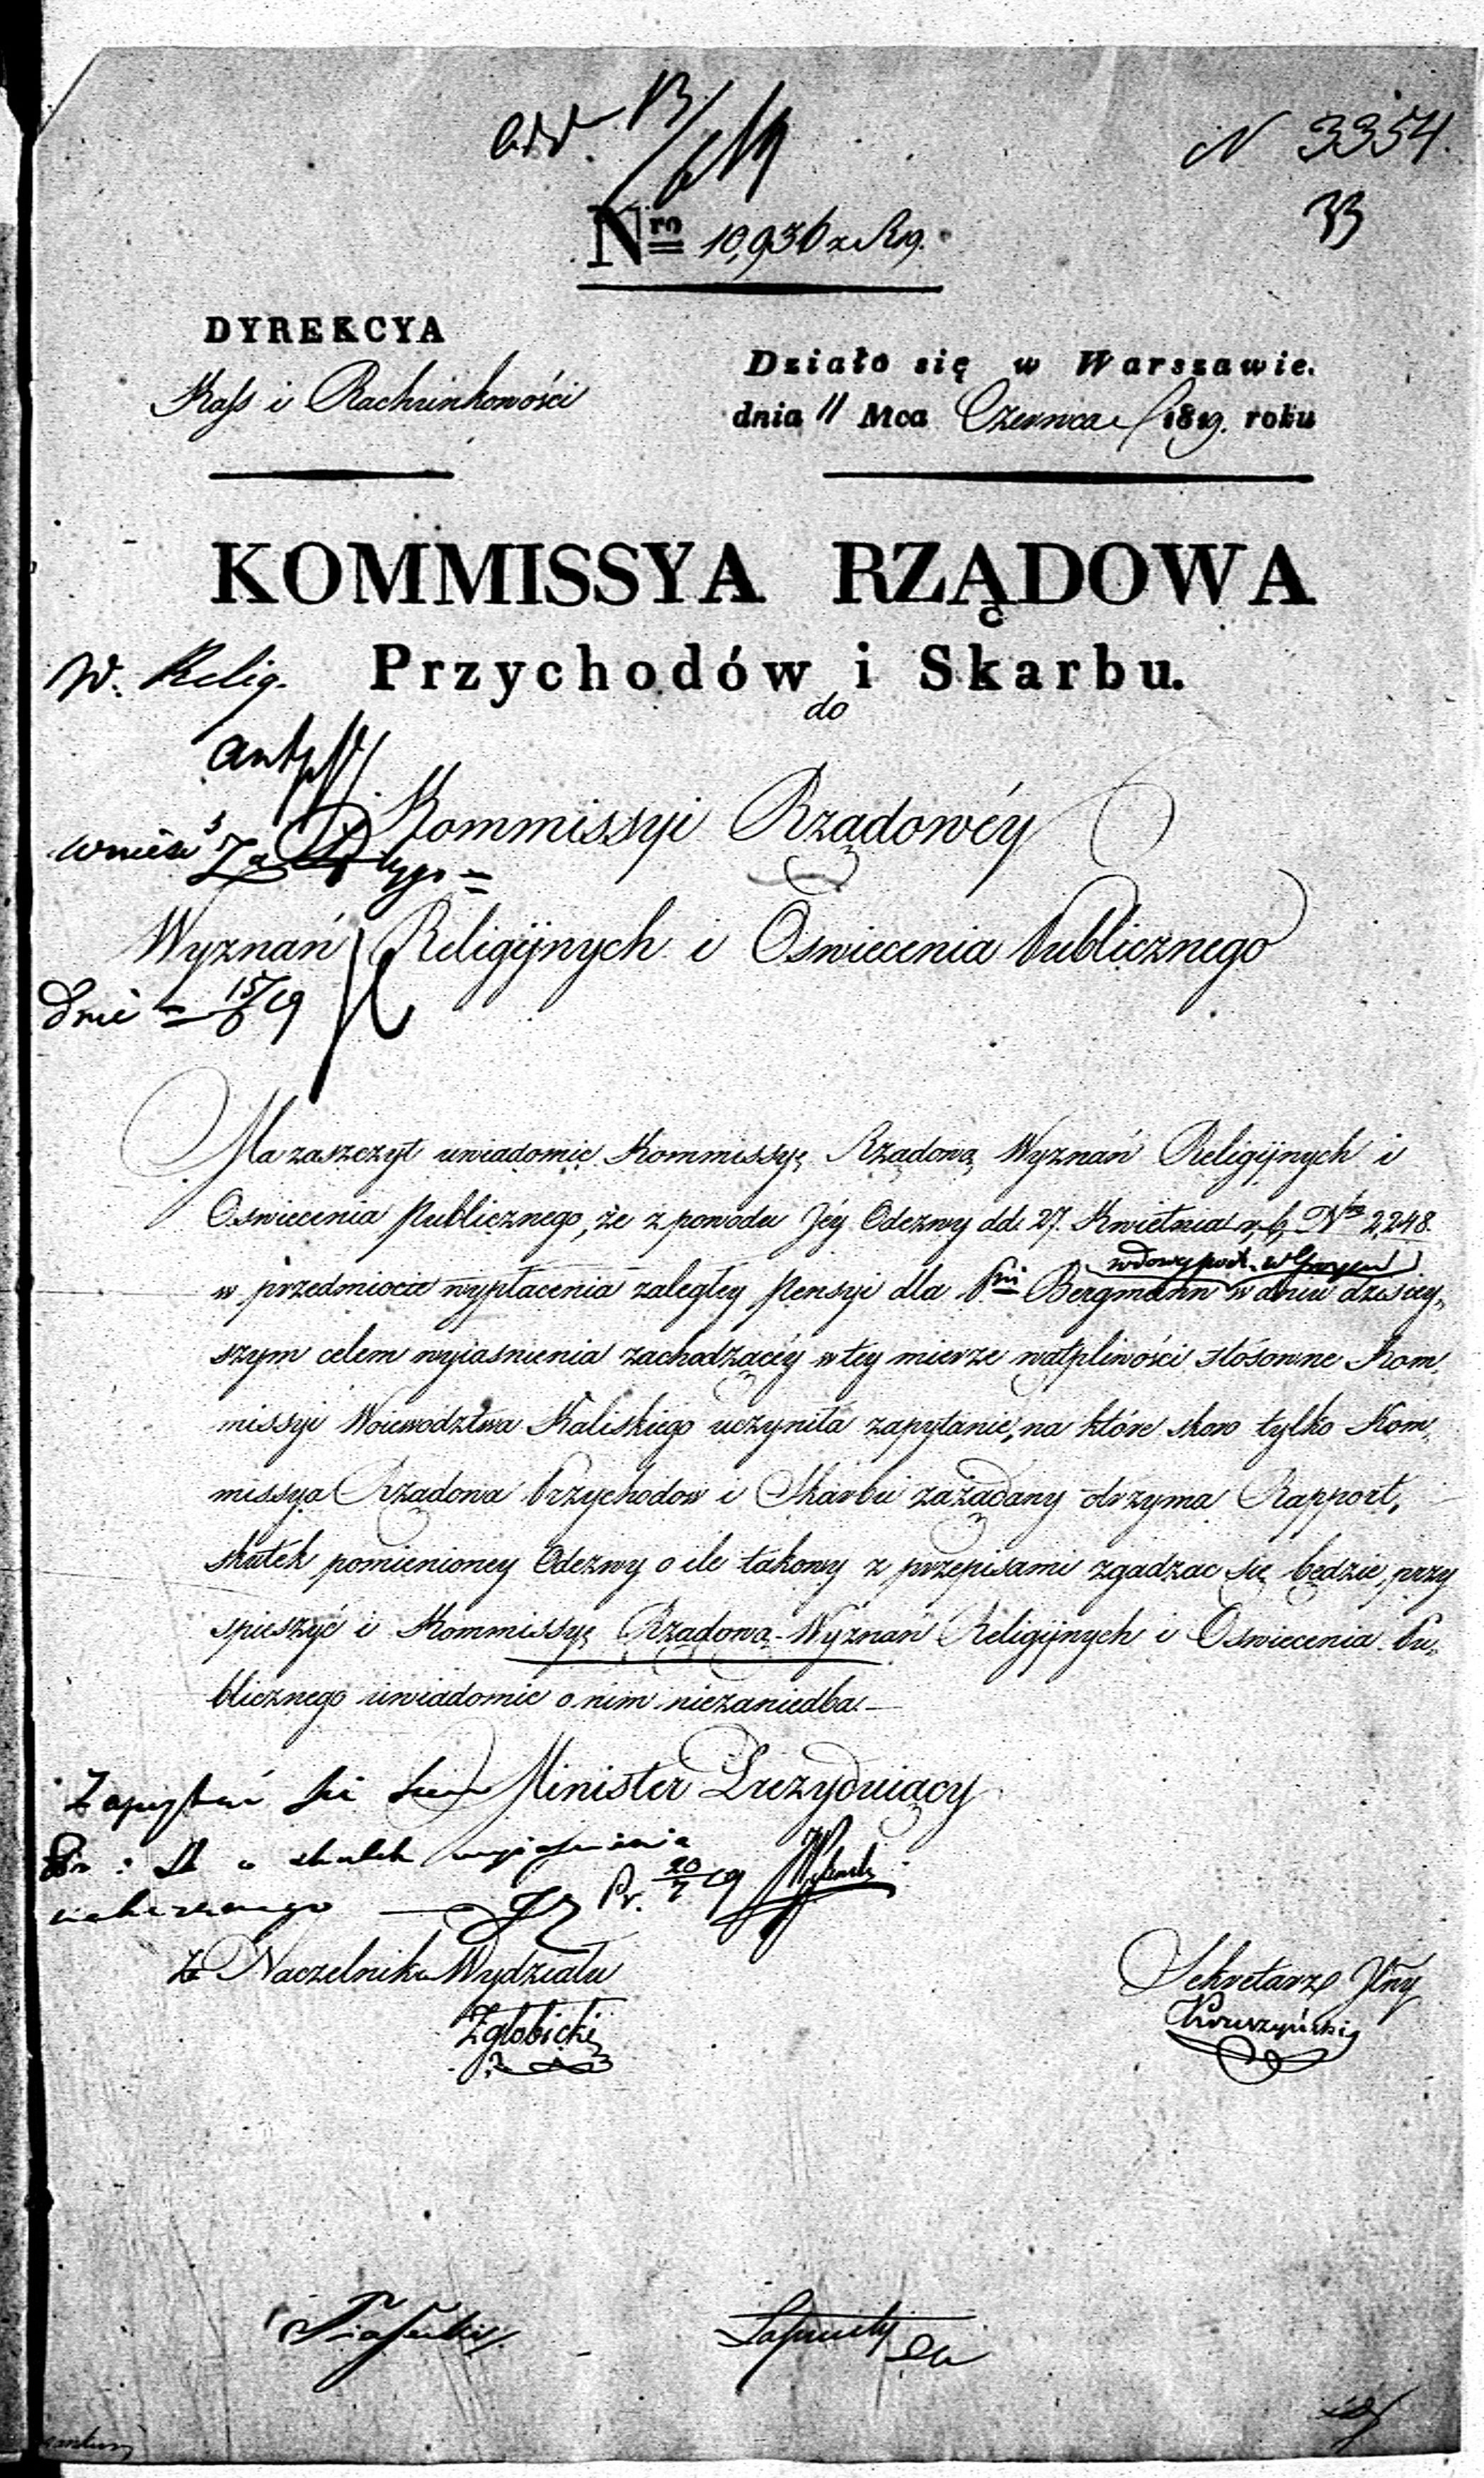 N 3354.
33
Nro 10,936 z R 19.
DYREKCYA
Kass i Rachunkowości
Działo się w Warszawie.
dnia 11 Mca Czerwca 1819. roku
KOMMISSYA RZĄDOWA
Przychodów i Skarbu.
W. Relig.
do
Kommissyi Rządowéy
wnieść
Wyznań Religijnych i Oswiecenia Publicznego
Dnia 15/6 19
Ma zaszczyt uwiadomić Kommissyę Rządową Wyznań Religijnych i
Oswiecenia Publicznego, że z powodu Jéy Odezwy dd. 27. Kwietnia r. b. Nro 2,248.
w przedmiocie wypłacenia zaległey Pensyi dla Pni Bergmann w dniu dzisiey-
szym celem wyiasnienia zachodzącéy w téy mierze wątpliwości stósowne Kom-
missyi Woiewodztwa Kaliskiego uczyniła zapytanie, na które skoro tylko Kom-
missya Rządowa Przychodow i Skarbu zażądany otrzyma Rapport,
skutek pomienioney Odezwy o ile takowy z przepisami zgadzac się będzie, przy
spieszyć i Kommissyę Rządową Wyznań Religijnych i Oswiecenia Pu-
blicznego uwiadomic o nim niezaniedba.—
Minister Prezyduiący
Zapytać się
o skutek wyiasnienia
Pr. 20/7 19
Za Naczelnika Wydziału
Zgłobicki
Sekretarz Jlny
Kruszyński